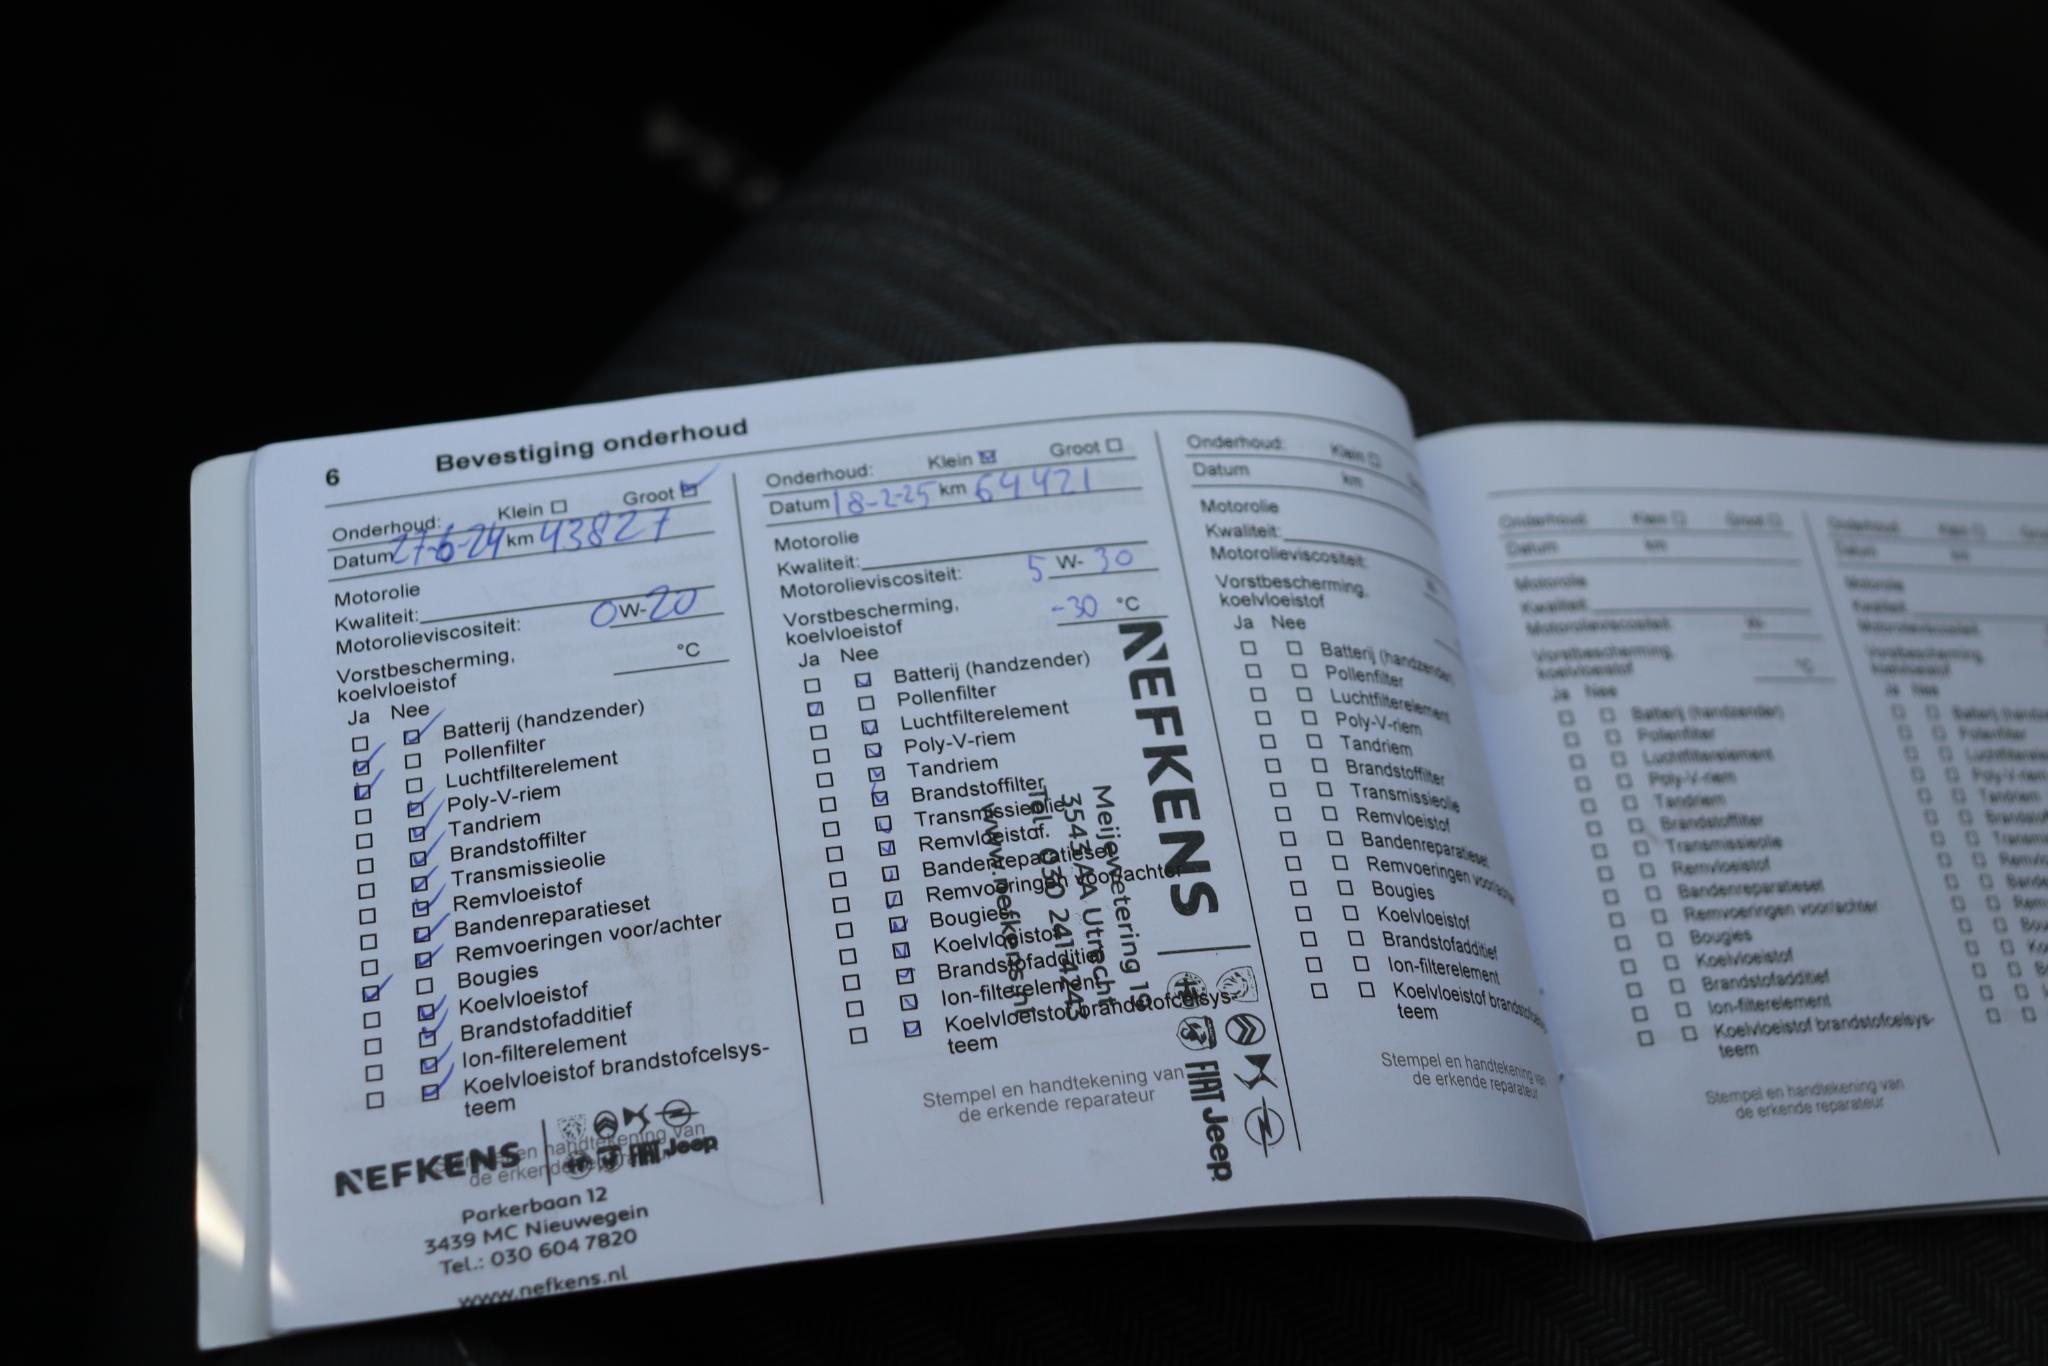 6 Bevestiging onderhoud
Onderhoud: Klein Groot
Datum 27-6-24 km 43827
Motorolie
Kwaliteit:
Motorolieviscositeit: 0 W-20
Vorstbescherming,
koelvloeistof °C
Ja Nee
Batterij (handzender)
Pollenfilter
Luchtfilterelement
Poly-V-riem
Tandriem
Brandstoffilter
Transmissieolie
Remvloeistof
Bandenreparatieset
Remvoeringen voor/achter
Bougies
Koelvloeistof
Brandstofadditief
Ion-filterelement
Koelvloeistof brandstofcelsys-
teem
Stempel en handtekening van
de erkende reparateur
NEFKENS
FIAT Jeep
Parkerbaan 12
3439 MC Nieuwegein
Tel.: 030 604 7820
www.nefkens.nl
Onderhoud: Klein Groot
Datum 18-2-25 km 64421
Motorolie
Kwaliteit:
Motorolieviscositeit: 5 W-30
Vorstbescherming,
koelvloeistof -30 °C
Ja Nee
Batterij (handzender)
Pollenfilter
Luchtfilterelement
Poly-V-riem
Tandriem
Brandstoffilter
Transmissieolie
Remvloeistof
Bandenreparatieset
Remvoeringen voor/achter
Bougies
Koelvloeistof
Brandstofadditief
Ion-filterelement
Koelvloeistof brandstofcelsys-
teem
Stempel en handtekening van
de erkende reparateur
NEFKENS
FIAT Jeep
Meijewetering 19
3543 AA Utrecht
Tel. 030 241 4243
www.nefkens.nl
Onderhoud: Klein
Datum km
Motorolie
Kwaliteit:
Motorolieviscositeit:
Vorstbescherming,
koelvloeistof
Ja Nee
Batterij (handzender)
Pollenfilter
Luchtfilterelement
Poly-V-riem
Tandriem
Brandstoffilter
Transmissieolie
Remvloeistof
Bandenreparatieset
Remvoeringen voor/achter
Bougies
Koelvloeistof
Brandstofadditief
Ion-filterelement
Koelvloeistof brandstofcelsys-
teem
Stempel en handtekening van
de erkende reparateur
Onderhoud: Klein Groot
Datum km
Motorolie
Kwaliteit:
Motorolieviscositeit: W-
Vorstbescherming,
koelvloeistof °C
Ja Nee
Batterij (handzender)
Pollenfilter
Luchtfilterelement
Poly-V-riem
Tandriem
Brandstoffilter
Transmissieolie
Remvloeistof
Bandenreparatieset
Remvoeringen voor/achter
Bougies
Koelvloeistof
Brandstofadditief
Ion-filterelement
Koelvloeistof brandstofcelsys-
teem
Stempel en handtekening van
de erkende reparateur
Onderhoud: Klein
Datum km
Motorolie
Kwaliteit:
Motorolieviscositeit
Vorstbescherming,
koelvloeistof
Ja Nee